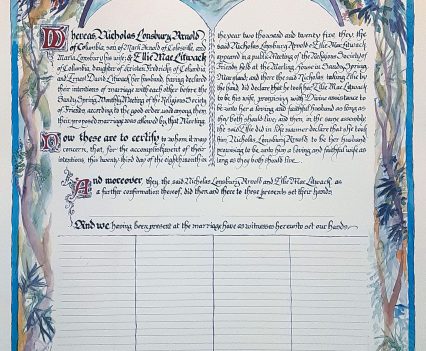 Whereas, Nicholas Lonsbury Arnold
of Columbia, son of Mark Arnold of Colesville, and
Maria Lonsbury his wife; & Ellie Mae Litwack
of Columbia, daughter of Kristen Fredricks of Columbia
and Ernest David Litwack her husband, having declared
their intentions of marriage with each other before the
Sandy Spring Monthly Meeting of the Religious Society
of Friends, according to the good order used among them,
their proposed marriage was allowed by that Meeting.
Now these are to certify to whom it may
concern, that, for the accomplishment of their
intentions, this twenty third day of the eighth month of
the year two thousand and twenty five they, the
said Nicholas Lonsbury Arnold & Ellie Mae Litwack
appeared in a public Meeting of the Religious Society of
Friends held at the Meeting House in Sandy Spring,
Maryland; and there the said Nicholas taking Ellie by
the hand, did declare that he took her, Ellie Mae Litwack
to be his wife, promising with Divine assistance to
be unto her a loving and faithful husband so long as
they both should live; and then, in the same assembly,
the said Ellie did in like manner declare that she took
him, Nicholas Lonsbury Arnold to be her husband
promising to be unto him a loving and faithful wife as
long as they both should live.
And moreover, they, the said Nicholas Lonsbury Arnold and Ellie Mae Litwack as
a further confirmation thereof, did then and there to these presents set their hands.
And we having been present at the marriage have as witnesses hereunto set our hands.